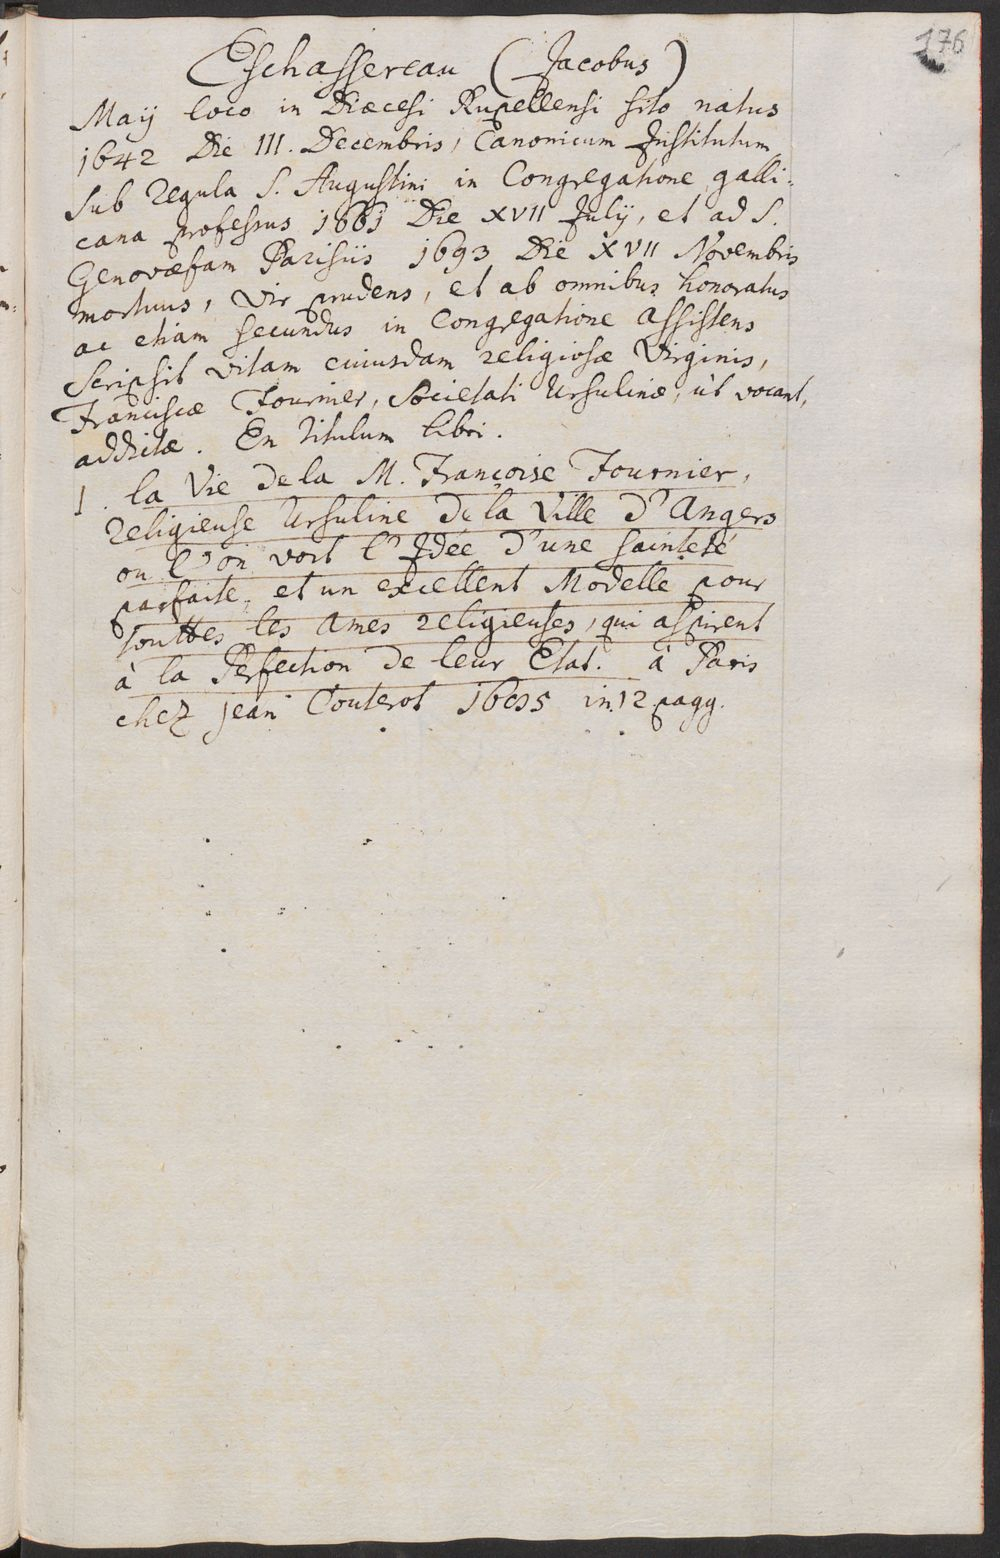 176
Eschassereau (Jacobus)
Maij loco in Diœcesi Rupellensi sito natus
1642 Die III. Decembris, Canonicum Institutum
sub regula S. Augustini in Congregatione galli-
cana professus 1661 Die XVII Julij, et ad S.
Genovæfam Parisiis 1693 Die XVII Novembris
mortuus, vir prudens, et ab omnibus honoratus
ac etiam secundus in Congregatione assistens
scripsit vitam cuiusdam religiosæ Virginis,
Franciscæ Fournier, Societati Ursulinæ, ut vocant,
addictæ. En titulum libri.
1. la Vie de la M. Françoise Fournier,
religieuse Ursuline de la Ville d'Angers
ou l'on voit l'Idée d'une sainteté
parfaite, et un excellent Modelle pour
touttes les Ames religieuses, qui aspirent
à la Perfection de leur Etat. à Paris
chez Jean Couterot 1695 in 12 pagg.